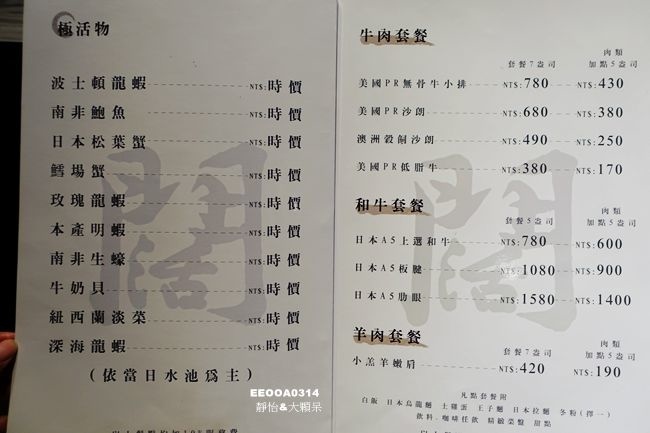 極活物
波士頓龍蝦 NT$:時價
南非鮑魚 NT$:時價
日本松葉蟹 NT$:時價
鱈場蟹 NT$:時價
玫瑰龍蝦 NT$:時價
本產明蝦 NT$:時價
南非生蠔 NT$:時價
牛奶貝 NT$:時價
紐西蘭淡菜 NT$:時價
深海龍蝦 NT$:時價
(依當日水池為主)
闊
牛肉套餐
套餐7盎司 肉類加點5盎司
美國PR無骨牛小排 NT$:780 NT$:430
美國PR沙朗 NT$:680 NT$:380
澳洲穀飼沙朗 NT$:490 NT$:250
美國PR低脂牛 NT$:380 NT$:170
和牛套餐
套餐5盎司 肉類加點5盎司
日本A5上選和牛 NT$:780 NT$:600
日本A5板腱 NT$:1080 NT$:900
日本A5肋眼 NT$:1580 NT$:1400
羊肉套餐
套餐7盎司 肉類加點5盎司
小羔羊嫩肩 NT$:420 NT$:190
凡點套餐附
白飯 日本烏龍麵 土雞蛋 王子麵 日本拉麵 冬粉(擇一)
飲料-咖啡任飲 精緻菜盤 甜點
闊
EEOOA0314
靜怡&大顆呆